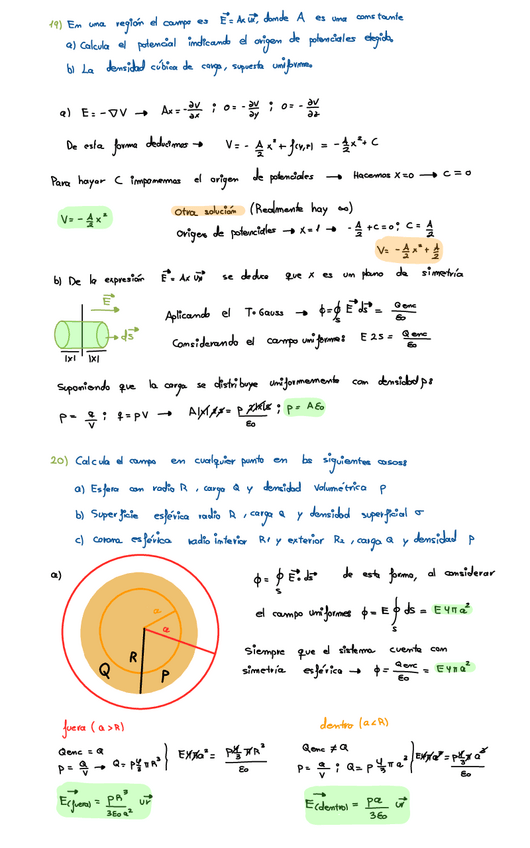 19) En una región el campo es E⃗ = Ax u⃗x, donde A es una constante
a) Calcula el potencial indicando el origen de potenciales elegido.
b) La densidad cúbica de carga, supuesta uniforme.
a) E = -∇V → Ax = -∂V/∂x ; 0 = -∂V/∂y ; 0 = -∂V/∂z
De esta forma deducimos → V = - A/2 x² + f(y,z) = - A/2 x² + C
Para hayar C imponemos el origen de potenciales → Hacemos x=0 → C = 0
V = - A/2 x²
Otra solución (Realmente hay ∞)
Origen de potenciales → x=1 → - A/2 + C = 0 ; C = A/2
V = - A/2 x² + A/2
b) De la expresión E⃗ = Ax u⃗x se deduce que x es un plano de simetría
E⃗
ds⃗
|x| |x|
Aplicando el T. Gauss → ϕ = ∮s E⃗ ds⃗ = Qenc/ε0
Considerando el campo uniforme: E 2S = Qenc/ε0
Suponiendo que la carga se distribuye uniformemente con densidad ρ:
ρ = q/V ; q = ρV → A|x|2s = ρ 2|x|s/ε0 ; ρ = Aε0
20) Calcula el campo en cualquier punto en los siguientes casos:
a) Esfera con radio R, carga Q y densidad volumétrica ρ
b) Superficie esférica radio R, carga Q y densidad superficial σ
c) Corona esférica radio interior R1 y exterior R2, carga Q y densidad ρ
a)
a
a
R
Q
ρ
ϕ = ∮s E⃗ ds⃗ de esta forma, al considerar
el campo uniforme: ϕ = E ∮s ds = E4πa²
Siempre que el sistema cuente con
simetría esférica → ϕ = Qenc/ε0 = E4πa²
fuera (a>R)
Qenc = Q
ρ = Q/V → Q = ρ 4/3 πR³ } E4πa² = ρ 4/3 πR³/ε0
E⃗(fuera) = ρR³/3ε0a² u⃗r
dentro (a<R)
Qenc ≠ Q
ρ = q/V ; Q = ρ 4/3 πa³ } E4πa² = ρ 4/3 π a³/ε0
E⃗(dentro) = ρa/3ε0 u⃗r